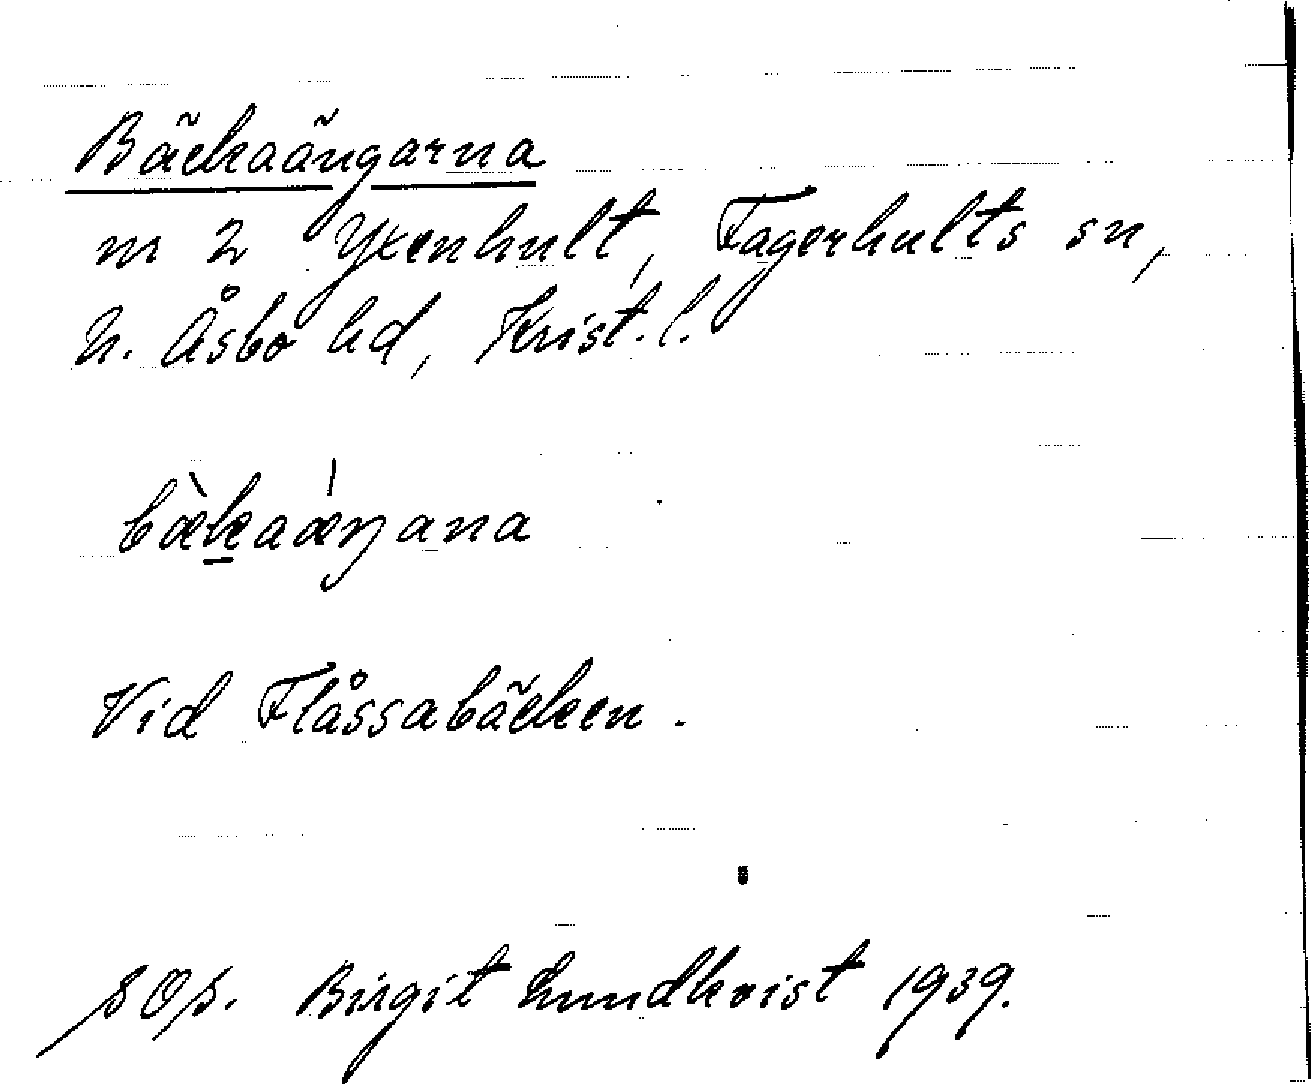 Bäckaängarna
m 2 Yxenhult, Fagerhults sn,
N. Åsbo hd, Krist. l.
bæ̀kaǽŋana
Vid Flåssabäcken.
Birgit Lundkvist 1939.